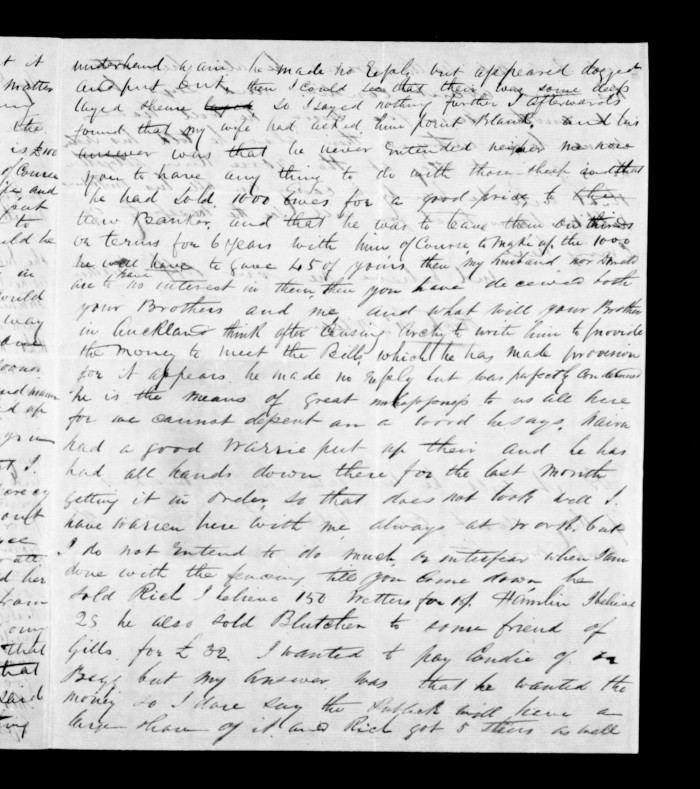 t it
matter
the
is £100
of Course
and
put
to
ld he
in
ould
way
d up
I.
out
all
d her
from
that
that
said
underhand again he made no Reply but appeared dogged
and put out, then I could see that their was some deep
layed sheme so I sayed nothing further I afterwards
found that my wife had asked him point Blank, and his
answer was that he never Entended neigher me nor
you to have any thing to do with those sheep and that
he had sold 1000 Ewes for a good price to
New Banker, and that he was to leave them on thirds
or terms for 6 years with him of Course, to make up the 1000
he to gave 45 of yours, then my husband nor Donald
have no interest in them, then you have deceived both
your Brothers and me, and what will your Brother
in Auckland think after Causing Archy to write him to provide
the money to meet the Bills, which he has made provision
for it appears he made no Reply but was perfectly
he is the means of great unhappiness to us all here
for we cannot depent on a word he says,
had a good Warrie put up their and he has
had all hands down there for the last month
getting it in order, so that does not look well I
have Warren here with me always at work but
I do not Entend to do much or interfear when I am
done with the fencing till you Come down, he
sold Rich I believe 150 Wetters for 10/. Hamlin I believe
25 he also sold Blutcher to some friend of
Gills for £32. I wanted to pay Condie of
Begg but my Answer was that he wanted the
money so I dare say the Publick will have a
large share of it and Rich got 5 steers as well